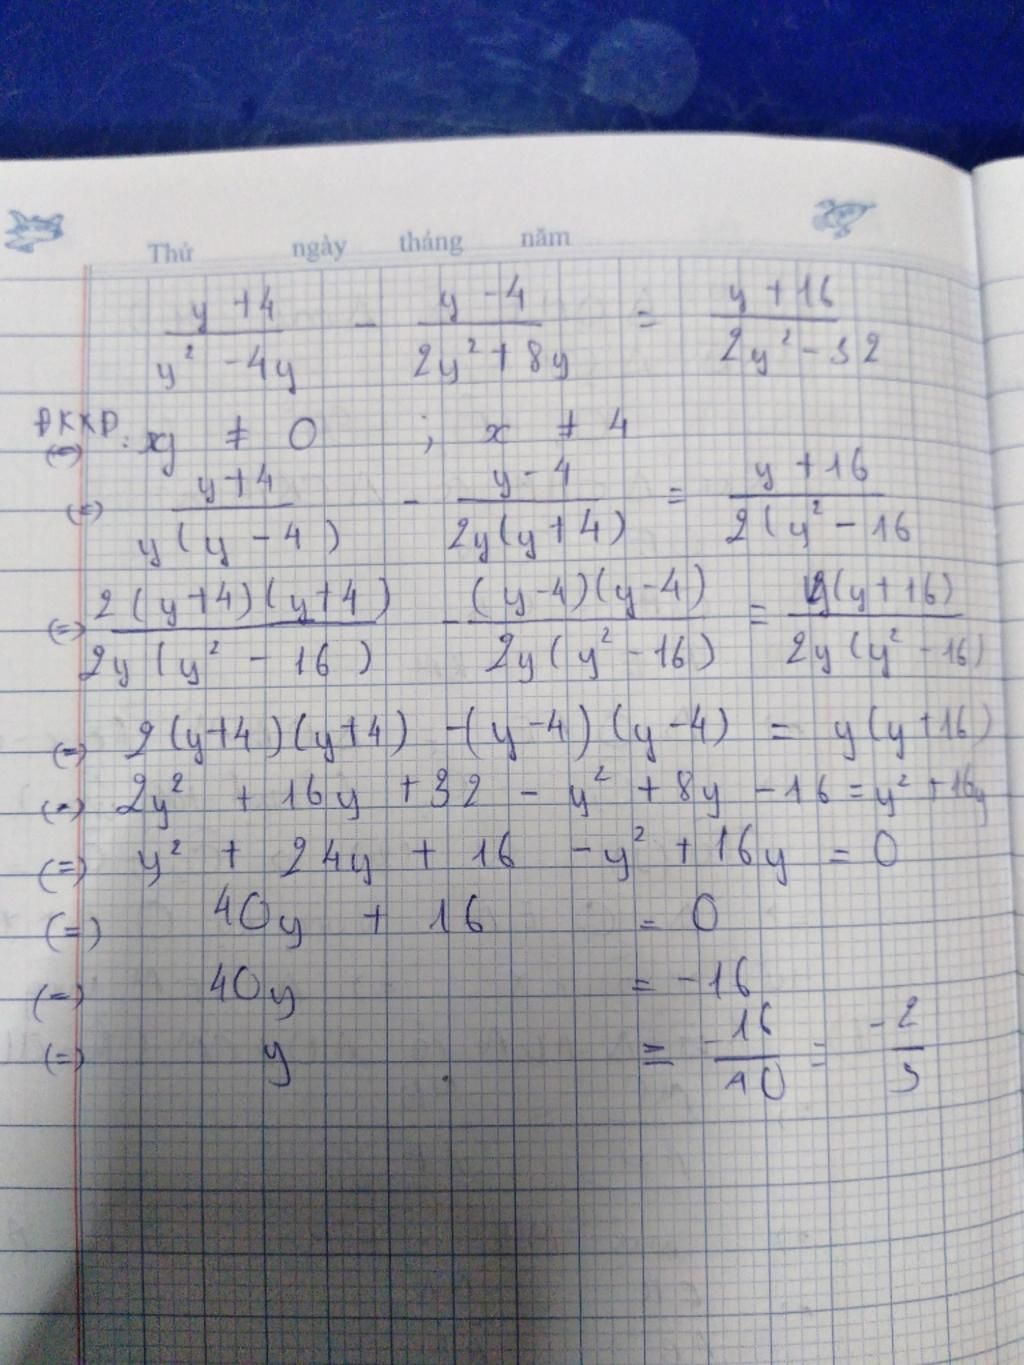 Thứ ngày tháng năm
y + 4 / y² - 4y - y - 4 / 2y² + 8y = y + 16 / 2y² - 32
ĐKXĐ: y ≠ 0 ; x ≠ 4
(=) y + 4 / y(y - 4) - y - 4 / 2y(y + 4) = y + 16 / 2(y² - 16
(=) 2(y+4)(y+4) / 2y(y² - 16) - (y-4)(y-4) / 2y(y² - 16) = y(y+16) / 2y(y² - 16)
(=) 2(y+4)(y+4) - (y-4)(y-4) = y(y+16)
(=) 2y² + 16y + 32 - y² + 8y - 16 = y² + 16y
(=) y² + 24y + 16 - y² + 16y = 0
(=) 40y + 16 = 0
(=) 40y = -16
(=) y = -16 / 40 = -2 / 5